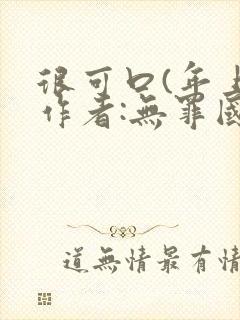 很可口(年上
作者:無罪國
道無情最有情